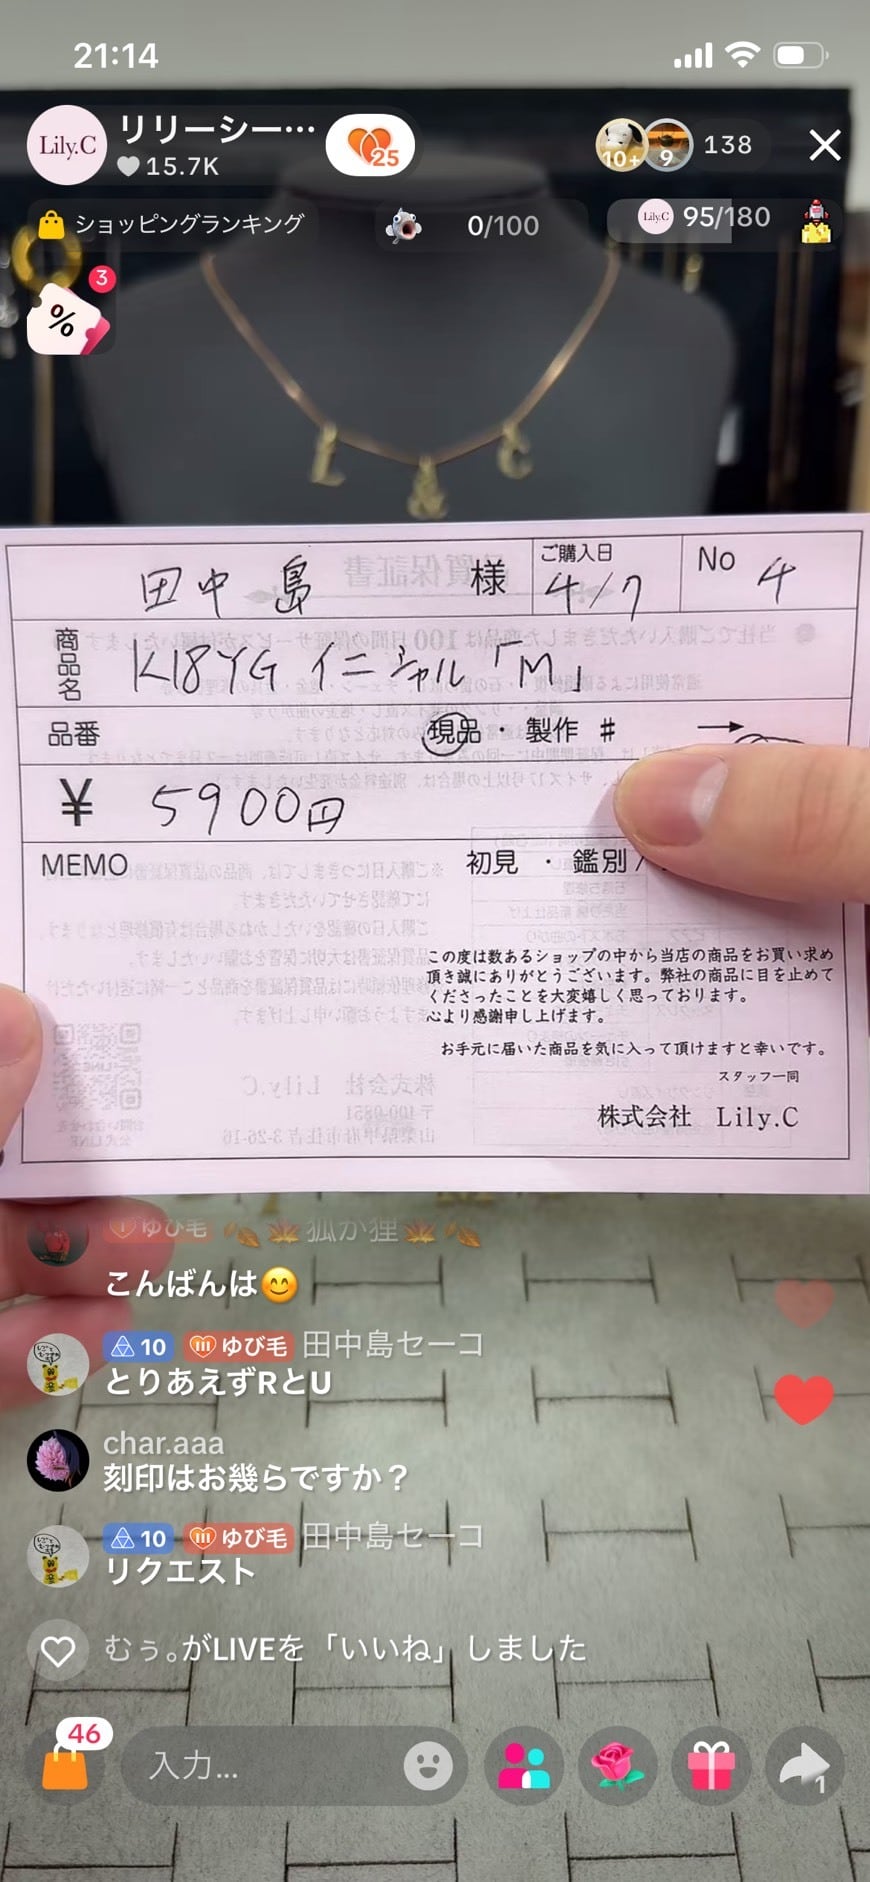 21:14
Lily.C
リリーシー…
15.7K
25
10+
9
138
ショッピングランキング
0/100
Lily.C
95/180
3
%
L & C
田中島 様
ご購入日
4/7
No 4
商品名
K18YG イニシャル「M」
品番
現品 ・ 製作 # →
¥ 5900円
MEMO
初見 ・ 鑑別 /
この度は数あるショップの中から当店の商品をお買い求め
頂き誠にありがとうございます。弊社の商品に目を止めて
くださったことを大変嬉しく思っております。
心より感謝申し上げます。
お手元に届いた商品を気に入って頂けますと幸いです。
スタッフ一同
株式会社 Lily.C
ゆび毛 🍂🍁狐か狸🍁🍂
こんばんは😊
10 ゆび毛 田中島セーコ
とりあえずRとU
char.aaa
刻印はお幾らですか？
10 ゆび毛 田中島セーコ
リクエスト
むぅ。がLIVEを「いいね」しました
46
入力...
1